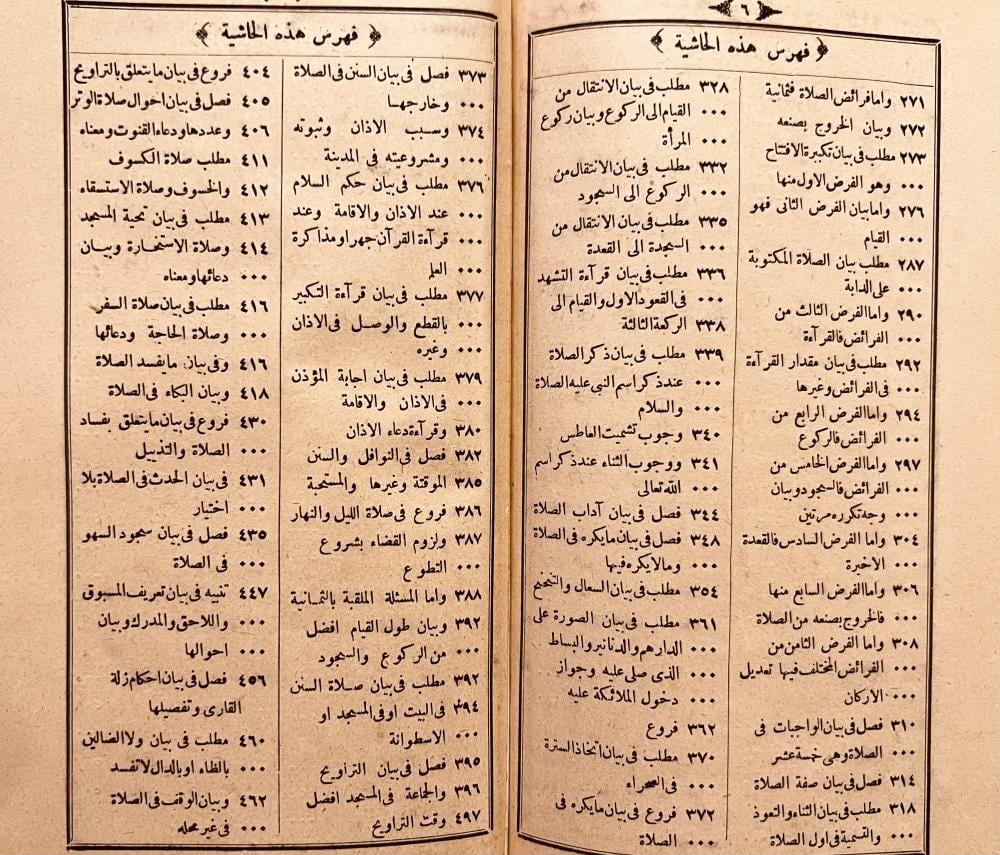 ٦
فهرس هذه الحاشية
٢٧١ واما فرائض الصلاة فثمانية
٢٧٢ وبيان الخروج بصنعه
٢٧٣ مطلب في بيان تكبيرة الافتتاح
٠٠٠ وهو الفرض الاول منها
٢٧٦ وامابيان الفرض الثانى فهو
٠٠٠ القيام
٢٨٧ مطلب بيان الصلاة المكتوبة
٠٠٠ على الدابة
٢٩٠ واما الفرض الثالث من
٠٠٠ الفرائض فالقرآءة
٢٩٢ مطلب فى بيان مقدار القرآءة
٠٠٠ فى الفرائض وغيرها
٢٩٤ واما الفرض الرابع من
٠٠٠ الفرائض فالركوع
٢٩٧ واما الفرض الخامس من
٠٠٠ الفرائض فالسجود وبيان
٠٠٠ وجه تكرره مرتين
٣٠٤ واما الفرض السادس فالقعدة
٠٠٠ الاخيرة
٣٠٦ واما الفرض السابع منها
٠٠٠ فالخروج بصنعه من الصلاة
٣٠٨ واما الفرض الثامن من
٠٠٠ الفرائض المختلف فيها تعديل
٠٠٠ الاركان
٣١٠ فصل فى بيان الواجبات فى
٠٠٠ الصلاة وهى خمسة عشر
٣١٤ فصل فى بيان صفة الصلاة
٣١٨ مطلب فى بيان الثناء والتعوذ
٠٠٠ والتسمية فى اول الصلاة
٣٢٨ مطلب فى بيان الانتقال من
٠٠٠ القيام الى الركوع وبيان ركوع
٠٠٠ المرأة
٣٣٢ مطلب فى بيان الانتقال من
٠٠٠ الركوع الى السجود
٣٣٥ مطلب فى بيان الانتقال من
٠٠٠ السجدة الى القعدة
٣٣٦ مطلب فى بيان قرآءة التشهد
٠٠٠ فى القعود الاول والقيام الى
٣٣٨ الركعة الثالثة
٣٣٩ مطلب فى بيان ذكر الصلاة
٠٠٠ عند ذكر اسم النبى عليه الصلاة
٠٠٠ والسلام
٣٤٠ وجوب تشميت العاطس
٣٤١ ووجوب الثناء عند ذكر اسم
٠٠٠ الله تعالى
٣٤٤ فصل فى بيان آداب الصلاة
٣٤٨ فصل فى بيان مايكره فى الصلاة
٠٠٠ ومالا يكره فيها
٣٥٤ مطلب فى بيان السعال والتنحنح
٣٦١ مطلب فى بيان الصورة على
٠٠٠ الدارهم والدنانير والبساط
٠٠٠ الذى صلى عليه وجواز
٠٠٠ دخول الملائكة عليه
٣٦٢ فروع
٣٧٠ مطلب فى بيان اتخاذ السترة
٠٠٠ فى الصحراء
٣٧٢ فروع فى بيان مايكره فى
٠٠٠ الصلاة
فهرس هذه الحاشية
٣٧٣ فصل فى بيان السنن فى الصلاة
٠٠٠ وخارجها
٣٧٤ وسبب الاذان وثبوته
٠٠٠ ومشروعيته فى المدينة
٣٧٦ مطلب فى بيان حكم السلام
٠٠٠ عند الاذان والاقامة وعند
٠٠٠ قرآءة القرآن جهر او مذاكرة
٠٠٠ العلم
٣٧٧ مطلب فى بيان قرآءة التكبير
٠٠٠ بالقطع والوصل فى الاذان
٠٠٠ وغيره
٣٧٩ مطلب فى بيان اجابة المؤذن
٠٠٠ فى الاذان والاقامة
٣٨٠ وقرآءة دعاء الاذان
٣٨٢ فصل فى النوافل والسنن
٣٨٥ الموقتة وغيرها والمستحبة
٣٨٦ فروع فى صلاة الليل والنهار
٣٨٧ ولزوم القضاء بشروع
٠٠٠ التطوع
٣٨٨ واما المسئلة الملقبة بالثمانية
٣٩٢ وبيان طول القيام افضل
٠٠٠ من الركوع والسجود
٣٩٢ مطلب فى بيان صلاة السنن
٣٩٤ فى البيت او فى المسجد او
٠٠٠ الاسطوانة
٣٩٥ فصل فى بيان التراويح
٣٩٦ والجاعة فى المسجد افضل
٤٩٧ وقت التراويح
٤٠٤ فروع فى بيان مايتعلق بالتراويح
٤٠٥ فصل فى بيان احوال صلاة الوتر
٤٠٦ وعددها ودعاء القنوت ومعناه
٤١١ مطلب صلاة الكسوف
٤١٢ والخسوف وصلاة الاستسقاء
٤١٣ مطلب فى بيان تحية المسجد
٤١٤ وصلاة الاستخارة وبيان
٠٠٠ دعائها ومعناه
٤١٦ مطلب فى بيان صلاة السفر
٠٠٠ وصلاة الحاجة ودعائها
٤١٦ وفى بيان مايفسد الصلاة
٤١٨ وبيان البكاء فى الصلاة
٤٣٠ فروع فى بيان مايتعلق بفساد
٠٠٠ الصلاة والتذييل
٤٣١ فى بيان الحدث فى الصلاة بلا
٠٠٠ اختيار
٤٣٥ فصل فى بيان سجود السهو
٠٠٠ فى الصلاة
٤٤٧ تنبيه فى بيان تعريف المسبوق
٠٠٠ واللاحق والمدرك وبيان
٠٠٠ احوالها
٤٥٦ فصل فى بيان احكام زلة
القارى وتفصيلها
٤٦٠ مطلب فى بيان ولا الضالين
٠٠٠ بالظاء او بالدال لا تفسد
٤٦٢ وبيان الوقف فى الصلاة
٠٠٠ فى غير محله